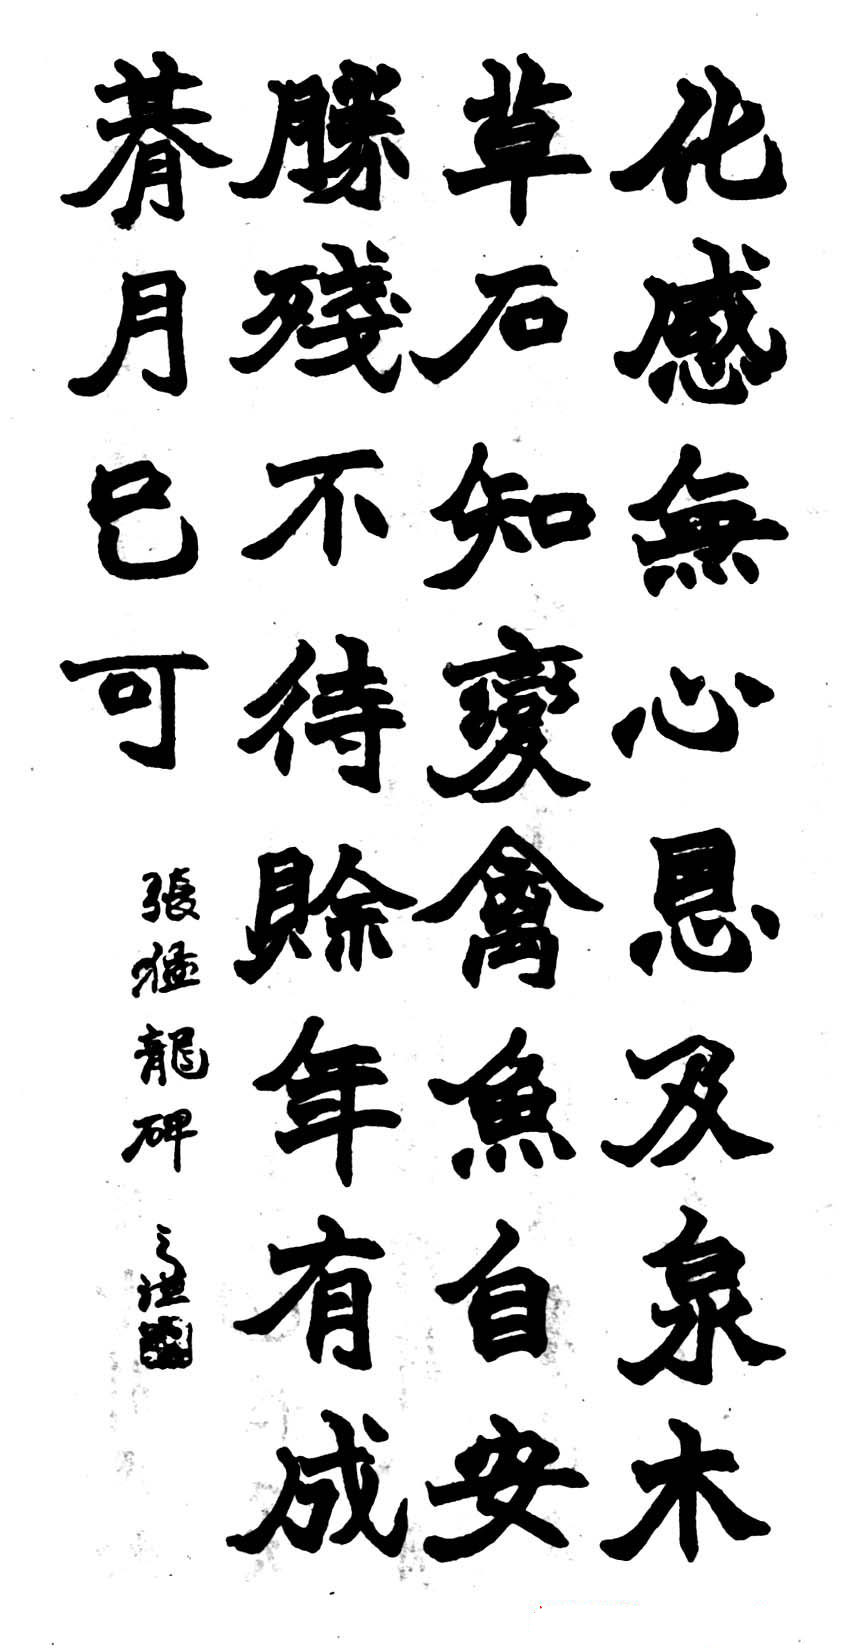 化感無心恩及泉木
草石知變禽魚自安
勝殘不待賒年有成
朞月已可
張猛龍碑